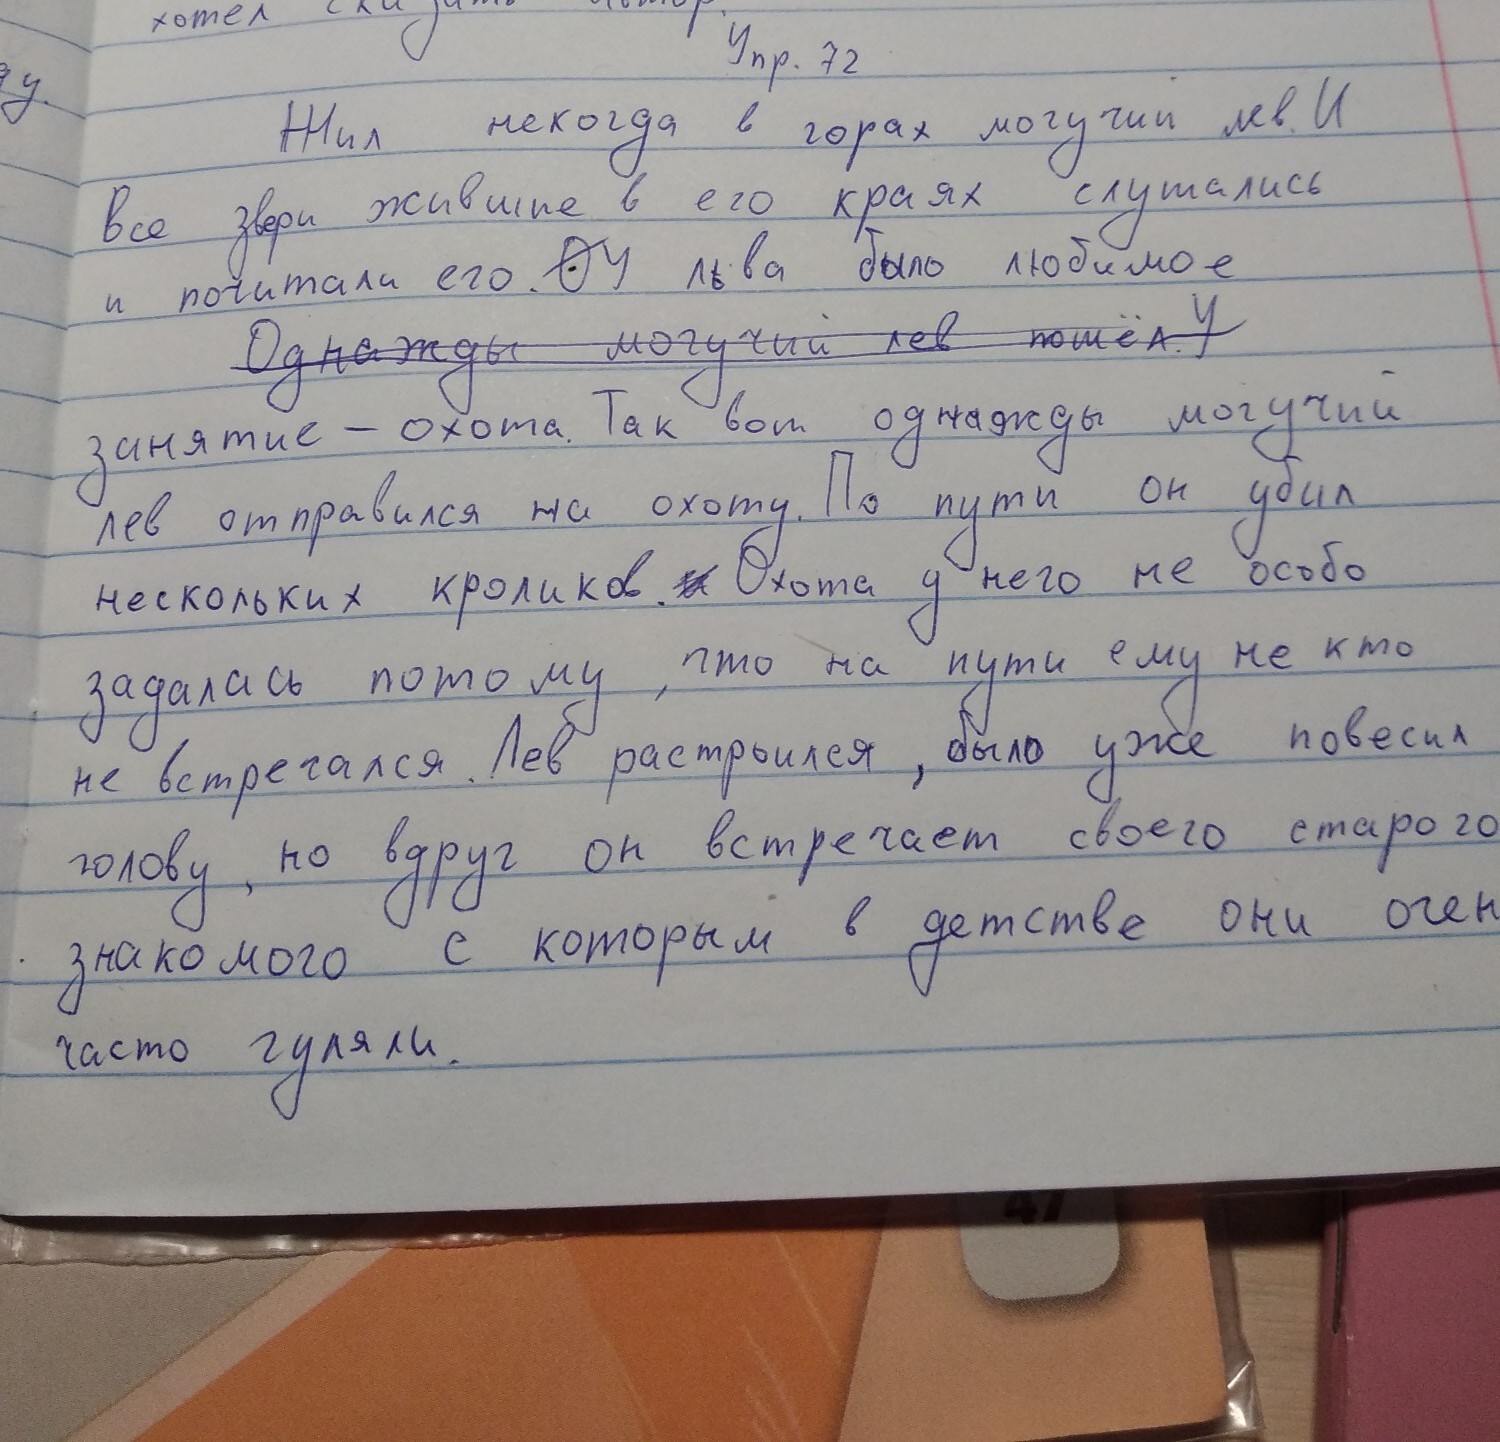 хотел сказать автор.
Упр. 72
Жил некогда в горах могучий лев. И
все звери жившие в его краях слушались
и почитали его. У льва было любимое
Однажды могучий лев пошёл. У
занятие – охота. Так вот однажды могучий
лев отправился на охоту. По пути он убил
нескольких кроликов. Охота у него не особо
задалась потому, что на пути ему не кто
не встречался. Лев растроился, было уже повесил
голову, но вдруг он встречает своего старого
знакомого с которым в детстве они очен
часто гуляли.
47